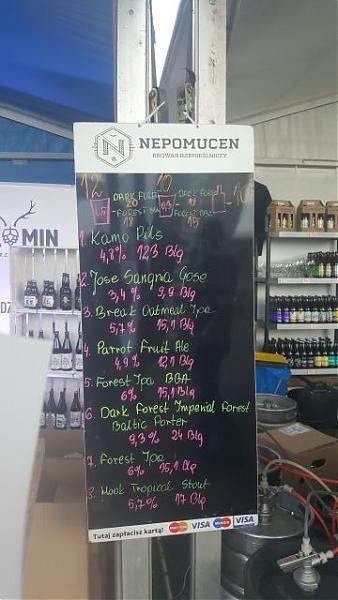 NEPOMUCEN
BROWAR RZEMIEŚLNICZY
12 10
DARK FOREST
20
FOREST
18
15
MIN
1. Kamo Pils
4,8% 12,3 Blg
2. Jose Sangria Gose
3,4% 9,9 Blg
3. Break Oatmeal Ipa
5,7% 15,1 Blg
4. Parrot Fruit Ale
4,9% 12,1 Blg
5. Forest Ipa BBA
6% 15,1 Blg
6. Dark Forest Imperial Forest
Baltic Porter
9,3% 24 Blg
7. Forest Ipa
6% 15,1 Blg
Tropical Stout
5,7% 17 Blg
Tutaj zapłacisz kartą! VISA VISA